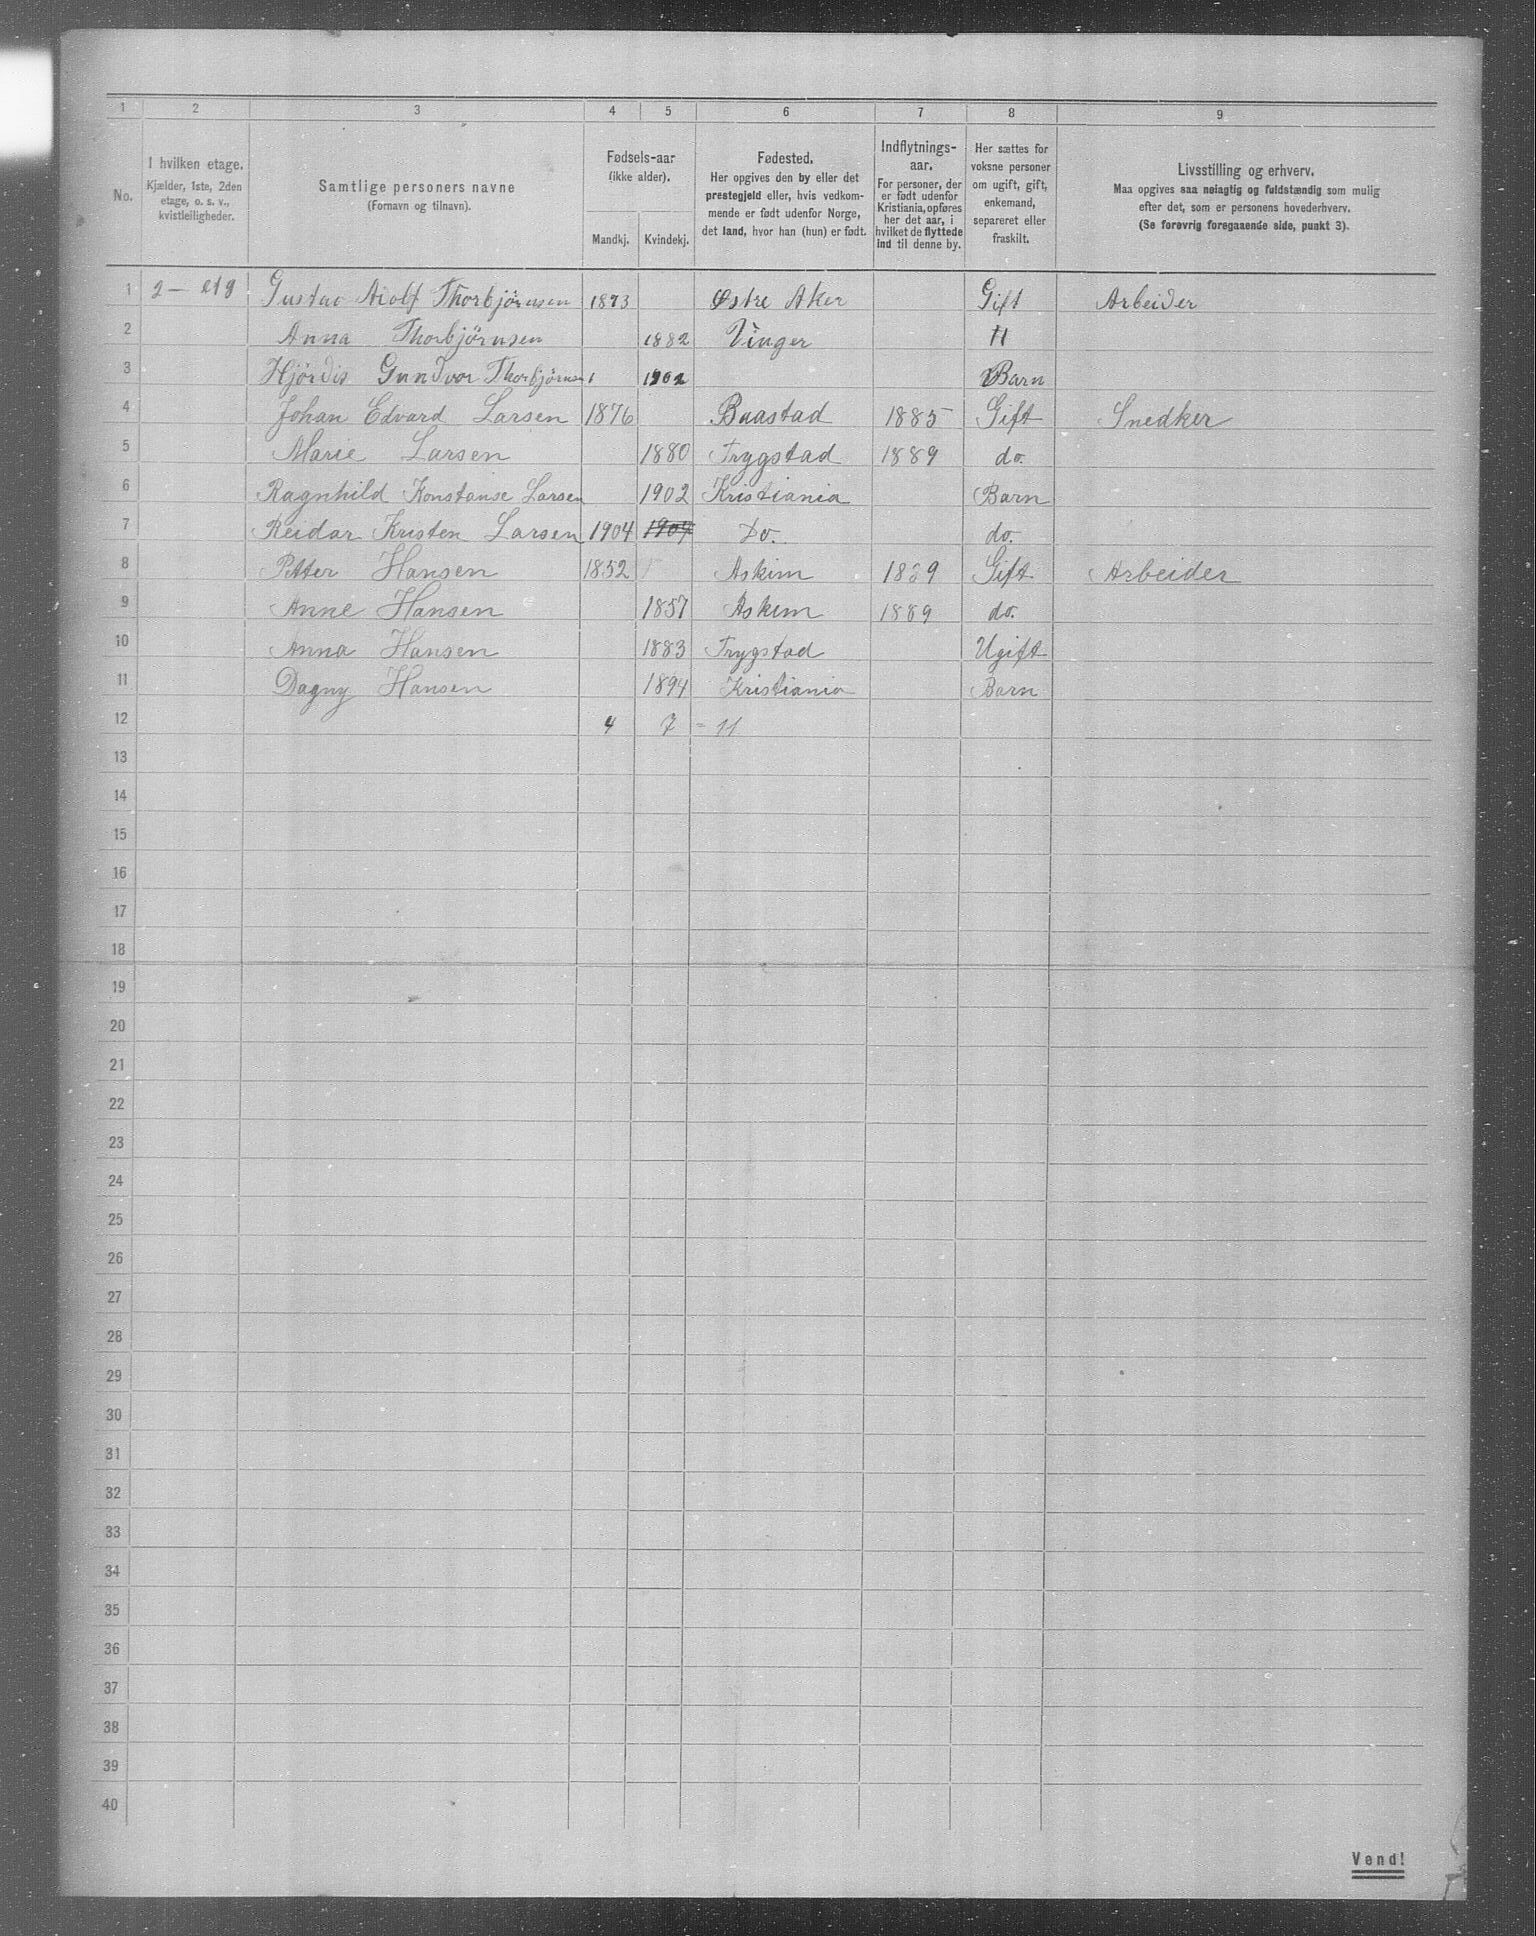 1 2 3 4 5 6 7 8 9
No. I hvilken etage. Kjælder, 1ste, 2den etage, o. s. v., kvistleiligheder. Samtlige personers navne (Fornavn og tilnavn). Fødsels-aar (ikke alder). Mandkj. Kvindekj. Fødested. Her opgives den by eller det prestegjeld eller, hvis vedkommende er født udenfor Norge, det land, hvor han (hun) er født. Indflytnings-aar. For personer, der er født udenfor Kristiania, opføres her det aar, i hvilket de flyttede ind til denne by. Her sættes for voksne personer om ugift, gift, enkemand, separeret eller fraskilt. Livsstilling og erhverv. Maa opgives saa nøiagtig og fuldstændig som mulig efter det, som er personens hovederhverv. (Se forøvrig foregaaende side, punkt 3).
1 2 – etg Gustav Adolf Thorbjörnsen 1873 Østre Aker Gift Arbeider
2 Anna Thorbjörnsen 1882 Vinger
3 Hjördis Gundvor Thorbjörnsen 1902 Barn
4 Johan Edvard Larsen 1876 Baastad 1885 Gift Snedker
5 Marie Larsen 1880 Trygstad 1889 do.
6 Ragnhild Konstanse Larsen 1902 Kristiania Barn
7 Reidar Kristen Larsen 1904 1904 Do. do.
8 Petter Hansen 1852 Askim 1889 Gift Arbeider
9 Anne Hansen 1857 Askim 1889 do.
10 Anna Hansen 1883 Trygstad Ugift
11 Dagny Hansen 1894 Kristiania Barn
12 4 7 = 11
13
14
15
16
17
18
19
20
21
22
23
24
25
26
27
28
29
30
31
32
33
34
35
36
37
38
39
40
Vend!